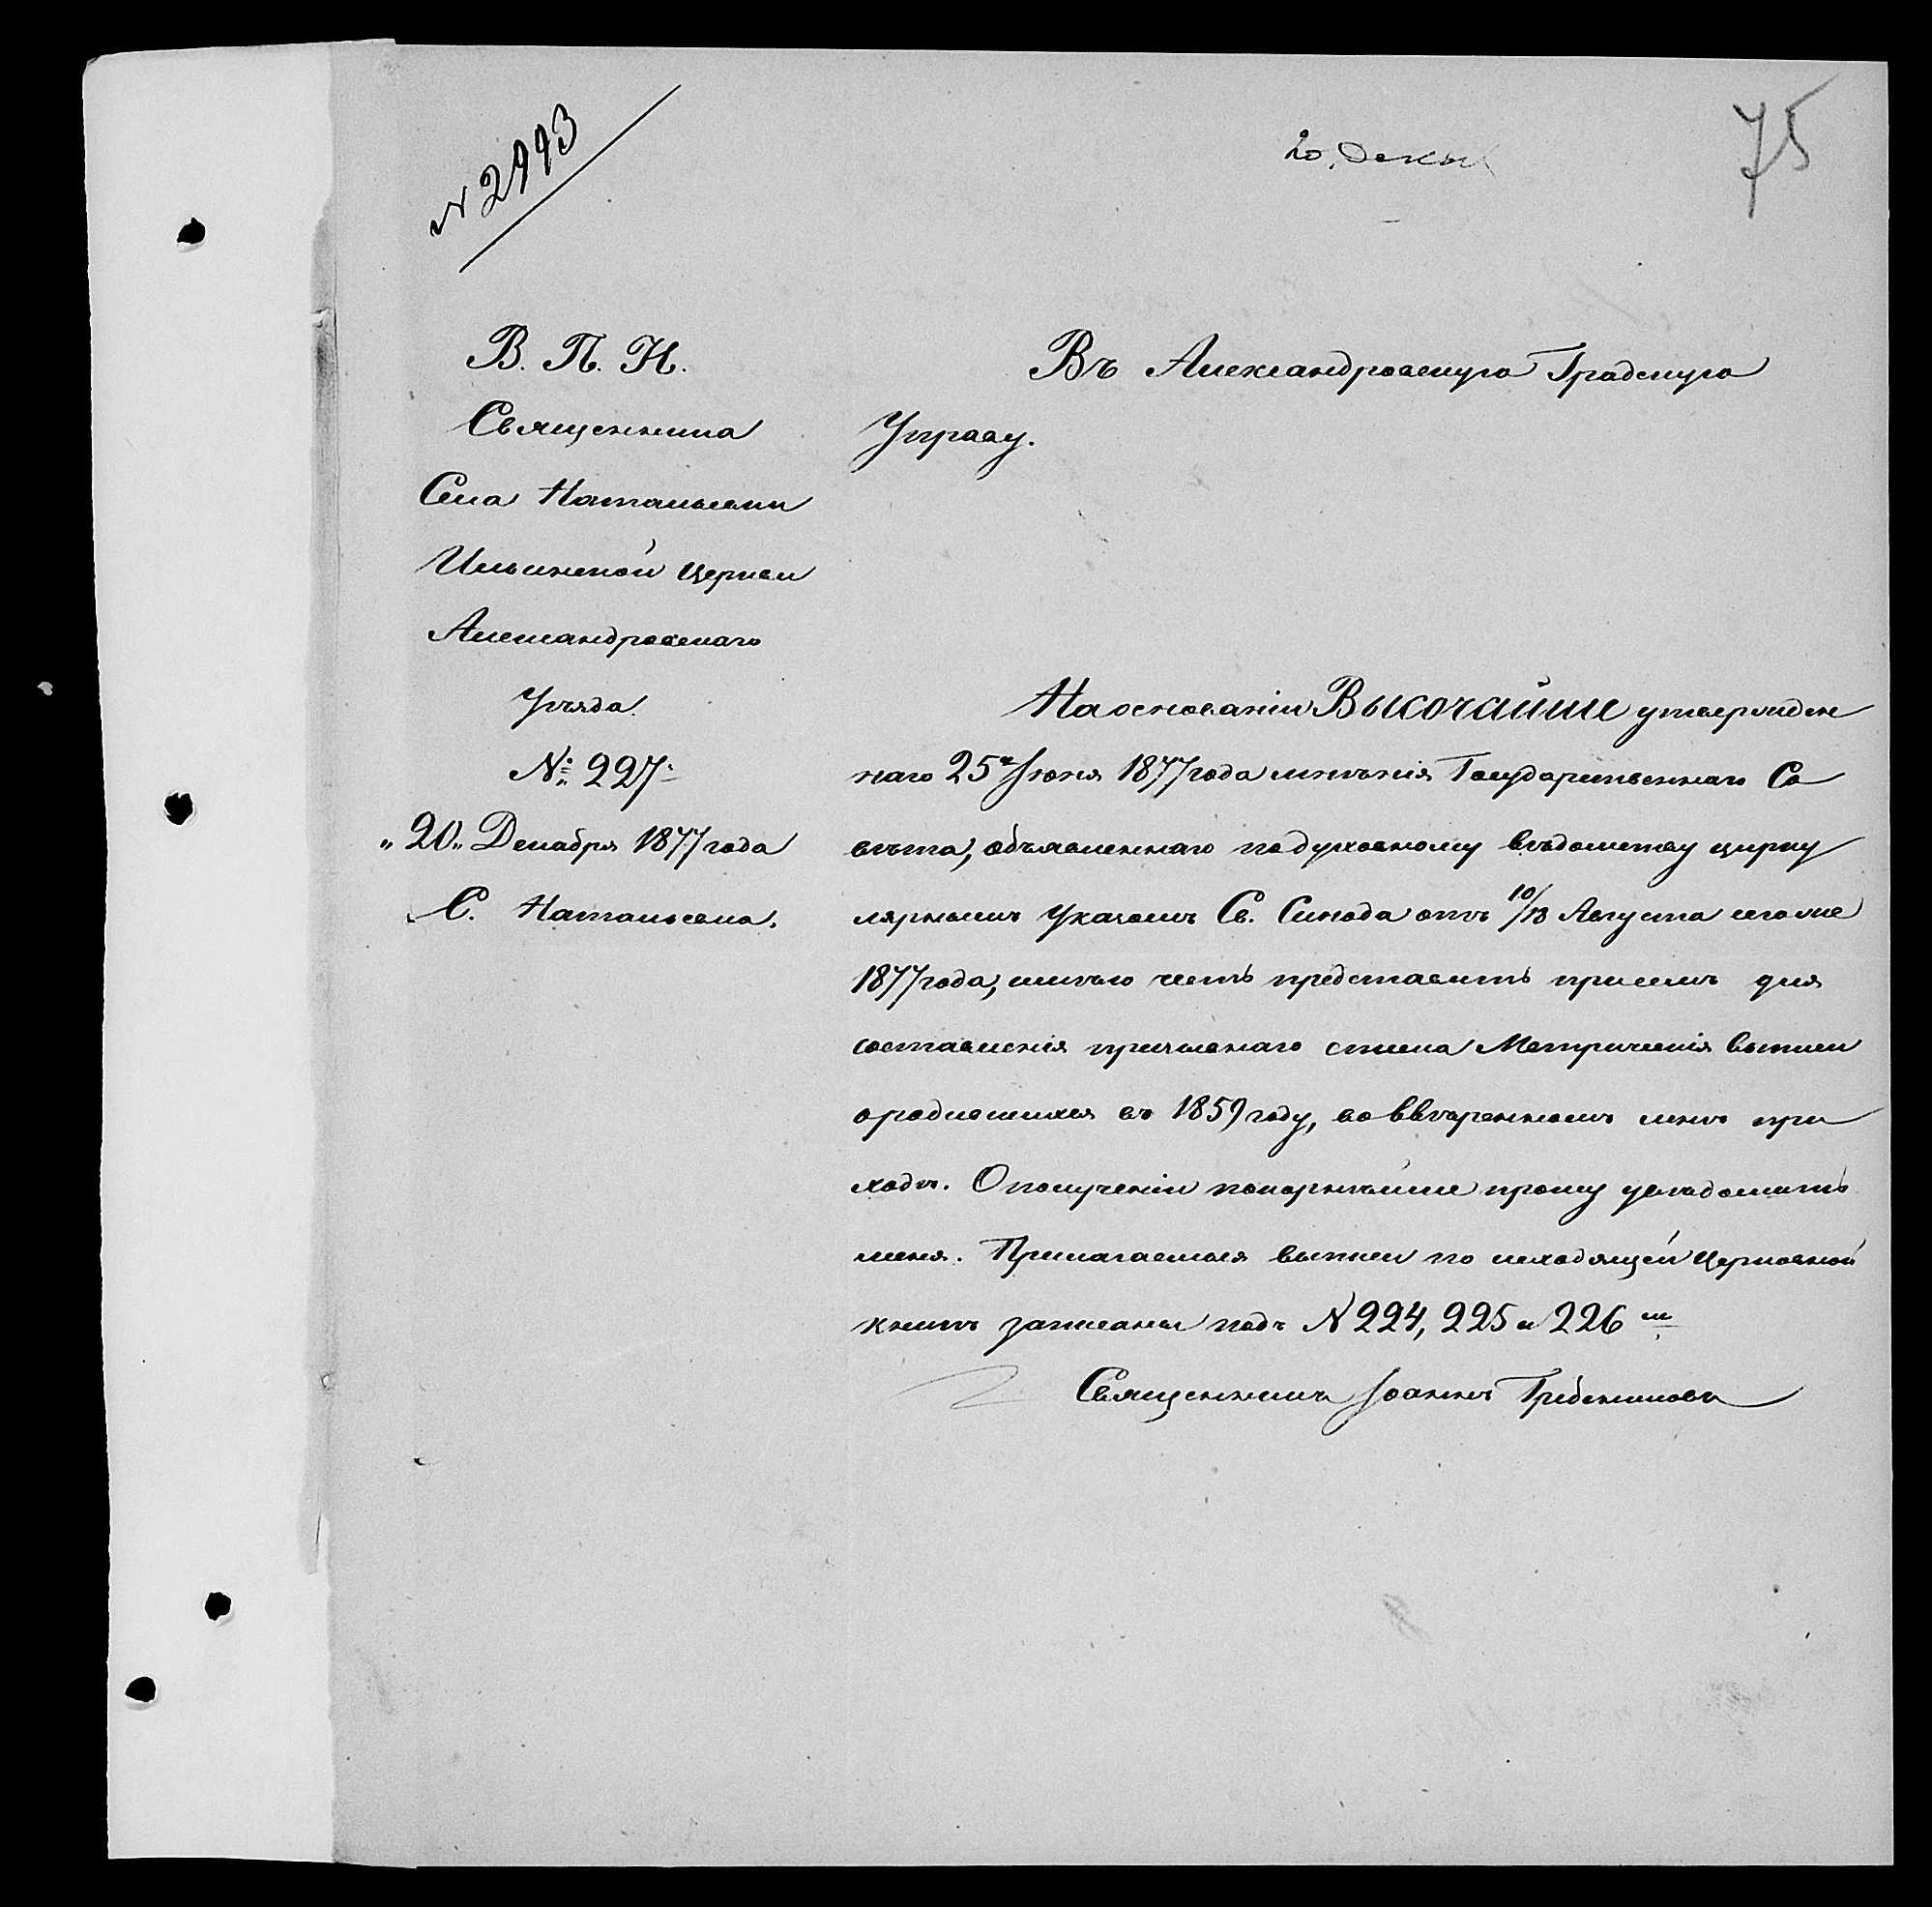 № 2993
20. Декаб
75
В. П. И.
Священника
Села Натальевки
Ильинской церкви
Александровскаго
Уѣзда
№ 227.
„20„ Декабря 1877 года
С. Натальевка.
Въ Александровскую Градскую
Управу.
На основаніи Высочайше утвержден
наго 25го Іюня 1877 года мнѣнія Государственнаго Со
вѣта, объявленнаго по духовному вѣдомству цирку
лярнымъ Указомъ Св. Синода отъ 10/18 Августа сего же
1877 года, имѣю честь представить при семъ для
составленія призывнаго списка Метрическія выписи
о родившихся въ 1857 году, во ввѣренномъ мнѣ при
ходѣ. О полученіи покорнѣйше прошу увѣдомить
меня. Прилагаемыя выписи по исходящей Церковной
книгѣ записаны подъ № 224, 225 и 226 ш
Священникъ Іоаннъ Гребенниковъ